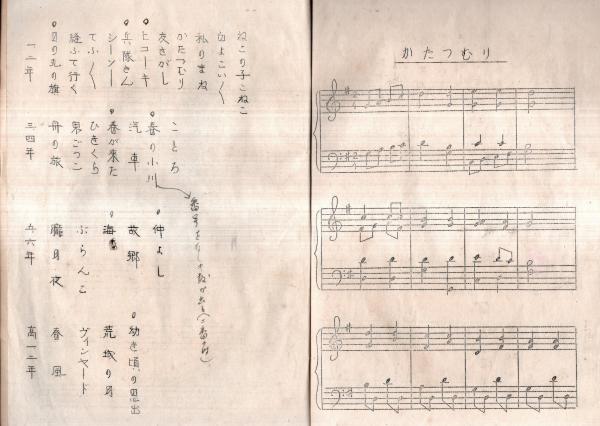 かたつむり
ねこの子こねこ
私のまね
かたつむり
友さがし
ヒコーキ
兵隊さん
シーソー
てふ〱
日の丸の旗
一二年
ことろ
春の小川
汽車
春が来た
ひきくら
舟の旅
三四年
仲よし
故郷
海
ぶらんこ
朧月夜
五六年
幼き頃の思出
荒城の月
ヴィンヤード
春風
高一二年